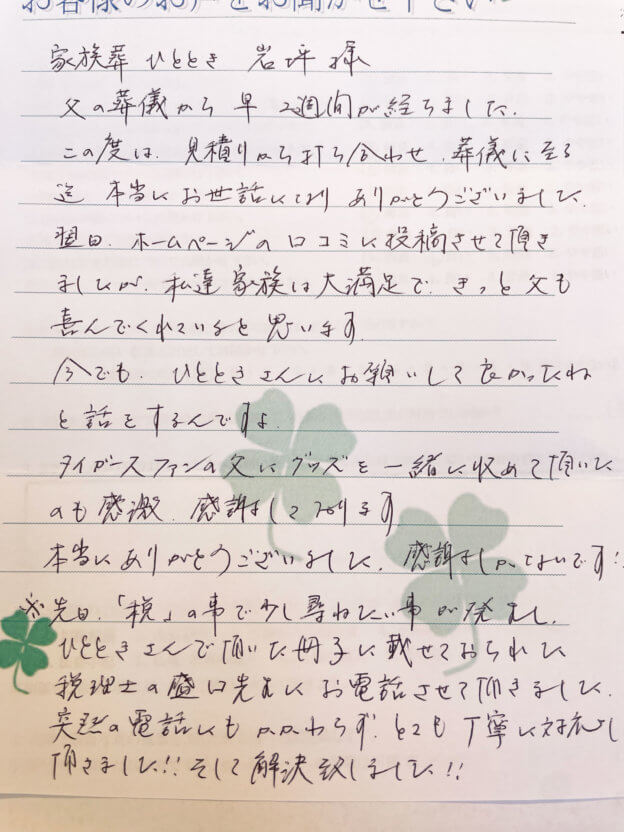 お客様のお声をお聞かせ下さい
家族葬 ひととき 岩坪 様
父の葬儀から早2週間が経ちました。
この度は、見積りから打ち合わせ、葬儀に至る
迄 本当にお世話になり ありがとうございました。
翌日、ホームページの口コミに投稿させて頂き
ましたが、私達家族は大満足で、きっと父も
喜んでくれていると思います
今でも、ひとときさんにお願いして良かったね
と話をするんですよ。
タイガースファンの父にグッズを一緒に収めて頂いた
のも感激、感謝しております
本当にありがとうございました。感謝しかないです!!
※先日、「税」の事で少し尋ねたい事が発生し、
ひとときさんで頂いた冊子に載せておられた
税理士の先生にお電話させて頂きました。
突然の電話にもかかわらず、とても丁寧に対応して
頂きました!! そして解決致しました!!